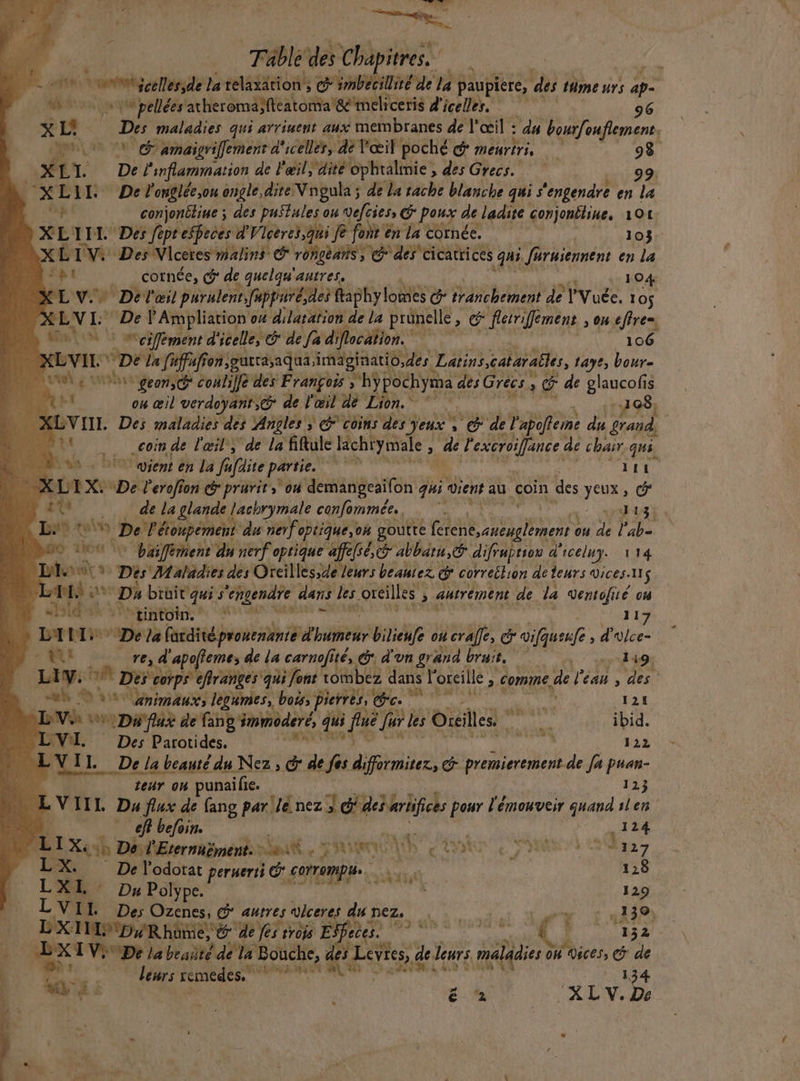 Table des Chapitres.
icelles, de la relaxation, & imbecillité de la paupiere, des tumeurs ap-
pellées atheroma, steatoma & meliceris d'icelles. 96
XL. Des maladies qui arriuent aux membranes de l'œil : du boursouflement
& amaigrissement d'icelles, de l'œil poché & meurtri. 98
XLI. De l'inflammation de l'œil, dite ophtalmie, des Grecs. 99
XLII. De l'onglée, ou ongle, dite Vngula ; de la tache blanche qui s'engendre en la
conjonctiue ; des pustules ou vescies, & poux de ladite conjonctiue. 101
XLIII. Des sept especes d'Vlceres, qui se font en la cornée. 103
XLIV. Des Vlceres malins & rongeans, & des cicatrices qui suruiennent en la
cornée, & de quelqu'autres. 104
XLV. De l'œil purulent, suppuré, des staphylomes & tranchement de l'Vuée. 105
XLVI. De l'Ampliation ou dilatation de la prunelle, & fletrissement, ou estre-
cissement d'icelle, & de sa dislocation. 106
XLVII. De la suffusion, gutta, aqua, imaginatio, des Latins, cataractes, taye, bour-
geon, & coulisse des François, hypochyma des Grecs, & de glaucosis
ou œil verdoyant, & de l'œil de Lion. 108
XLVIII. Des maladies des Angles, & coins des yeux, & de l'aposteme du grand
coin de l'œil, de la fistule lachrymale, de l'excroissance de chair qui
vient en la susdite partie. 111
XLIX. De l'erosion & prurit, ou demangeaison qui vient au coin des yeux, &
de la glande lachrymale consommée. 113
L. De l'étoupement du nerf optique, ou goutte serene, aueuglement ou de l'ab-
baissement du nerf optique affessé, & abbatu, & disruption d'iceluy. 114
LI. Des Maladies des Oreilles, de leurs beautez, & correction de leurs vices. 115
LII. Du bruit qui s'engendre dans les oreilles, autrement de la ventosité ou
tintoin. 117
LIII. De la surdité prouenante d'humeur bilieuse ou crasse, & visqueuse, d'vlce-
re, d'aposteme, de la carnosité, & d'vn grand bruit. 119
LIV. Des corps estranges qui sont tombez dans l'oreille, comme de l'eau, des
animaux, legumes, bois, pierres, &c. 121
LV. Du flux de sang immoderé, qui fluë sur les Oreilles. ibid.
LVI. Des Parotides. 122
LVII. De la beauté du Nez, & de ses difformitez, & premierement de sa puan-
teur ou punaisie. 123
LVIII. Du flux de sang par le nez, & des artifices pour l'émouveir quand il en
est besoin. 124
LIX. De l'Eternuëment. 127
LX. De l'odorat peruerti & corrompu. 128
LXI. Du Polype. 129
LVII. Des Ozenes, & autres vlceres du nez. 130
LXIII. Du Rhume, & de ses trois Especes. 132
LXIV. De la beauté de la Bouche, des Levres, de leurs maladies ou vices, & de
leurs remedes. 134
é 2 XLV. De